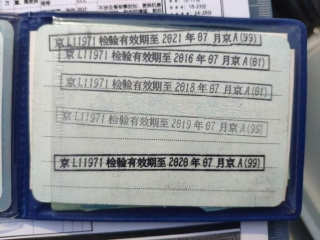 京L11971检验有效期至2021年07月京A(99)
京L11971检验有效期至2016年07月京A(01)
京L11971检验有效期至2018年07月京A(01)
京L11971检验有效期至2019年07月京A(99)
京L11971检验有效期至2020年07月京A(99)